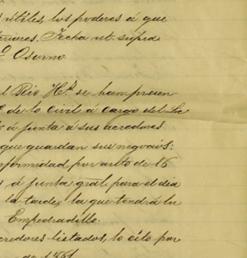 útiles, los poderes á que
Fecha ut supra
Osorno
Rio Hs. se han presen
de lo civil á cargo del Lo
á junta á sus acreedores
que guardan sus negocios:
conformidad, por auto de 16
á junta gral. para el dia
la tarde, la que tendrá lu
Empedradillo.
acreedores listados, lo cito por
de 1861